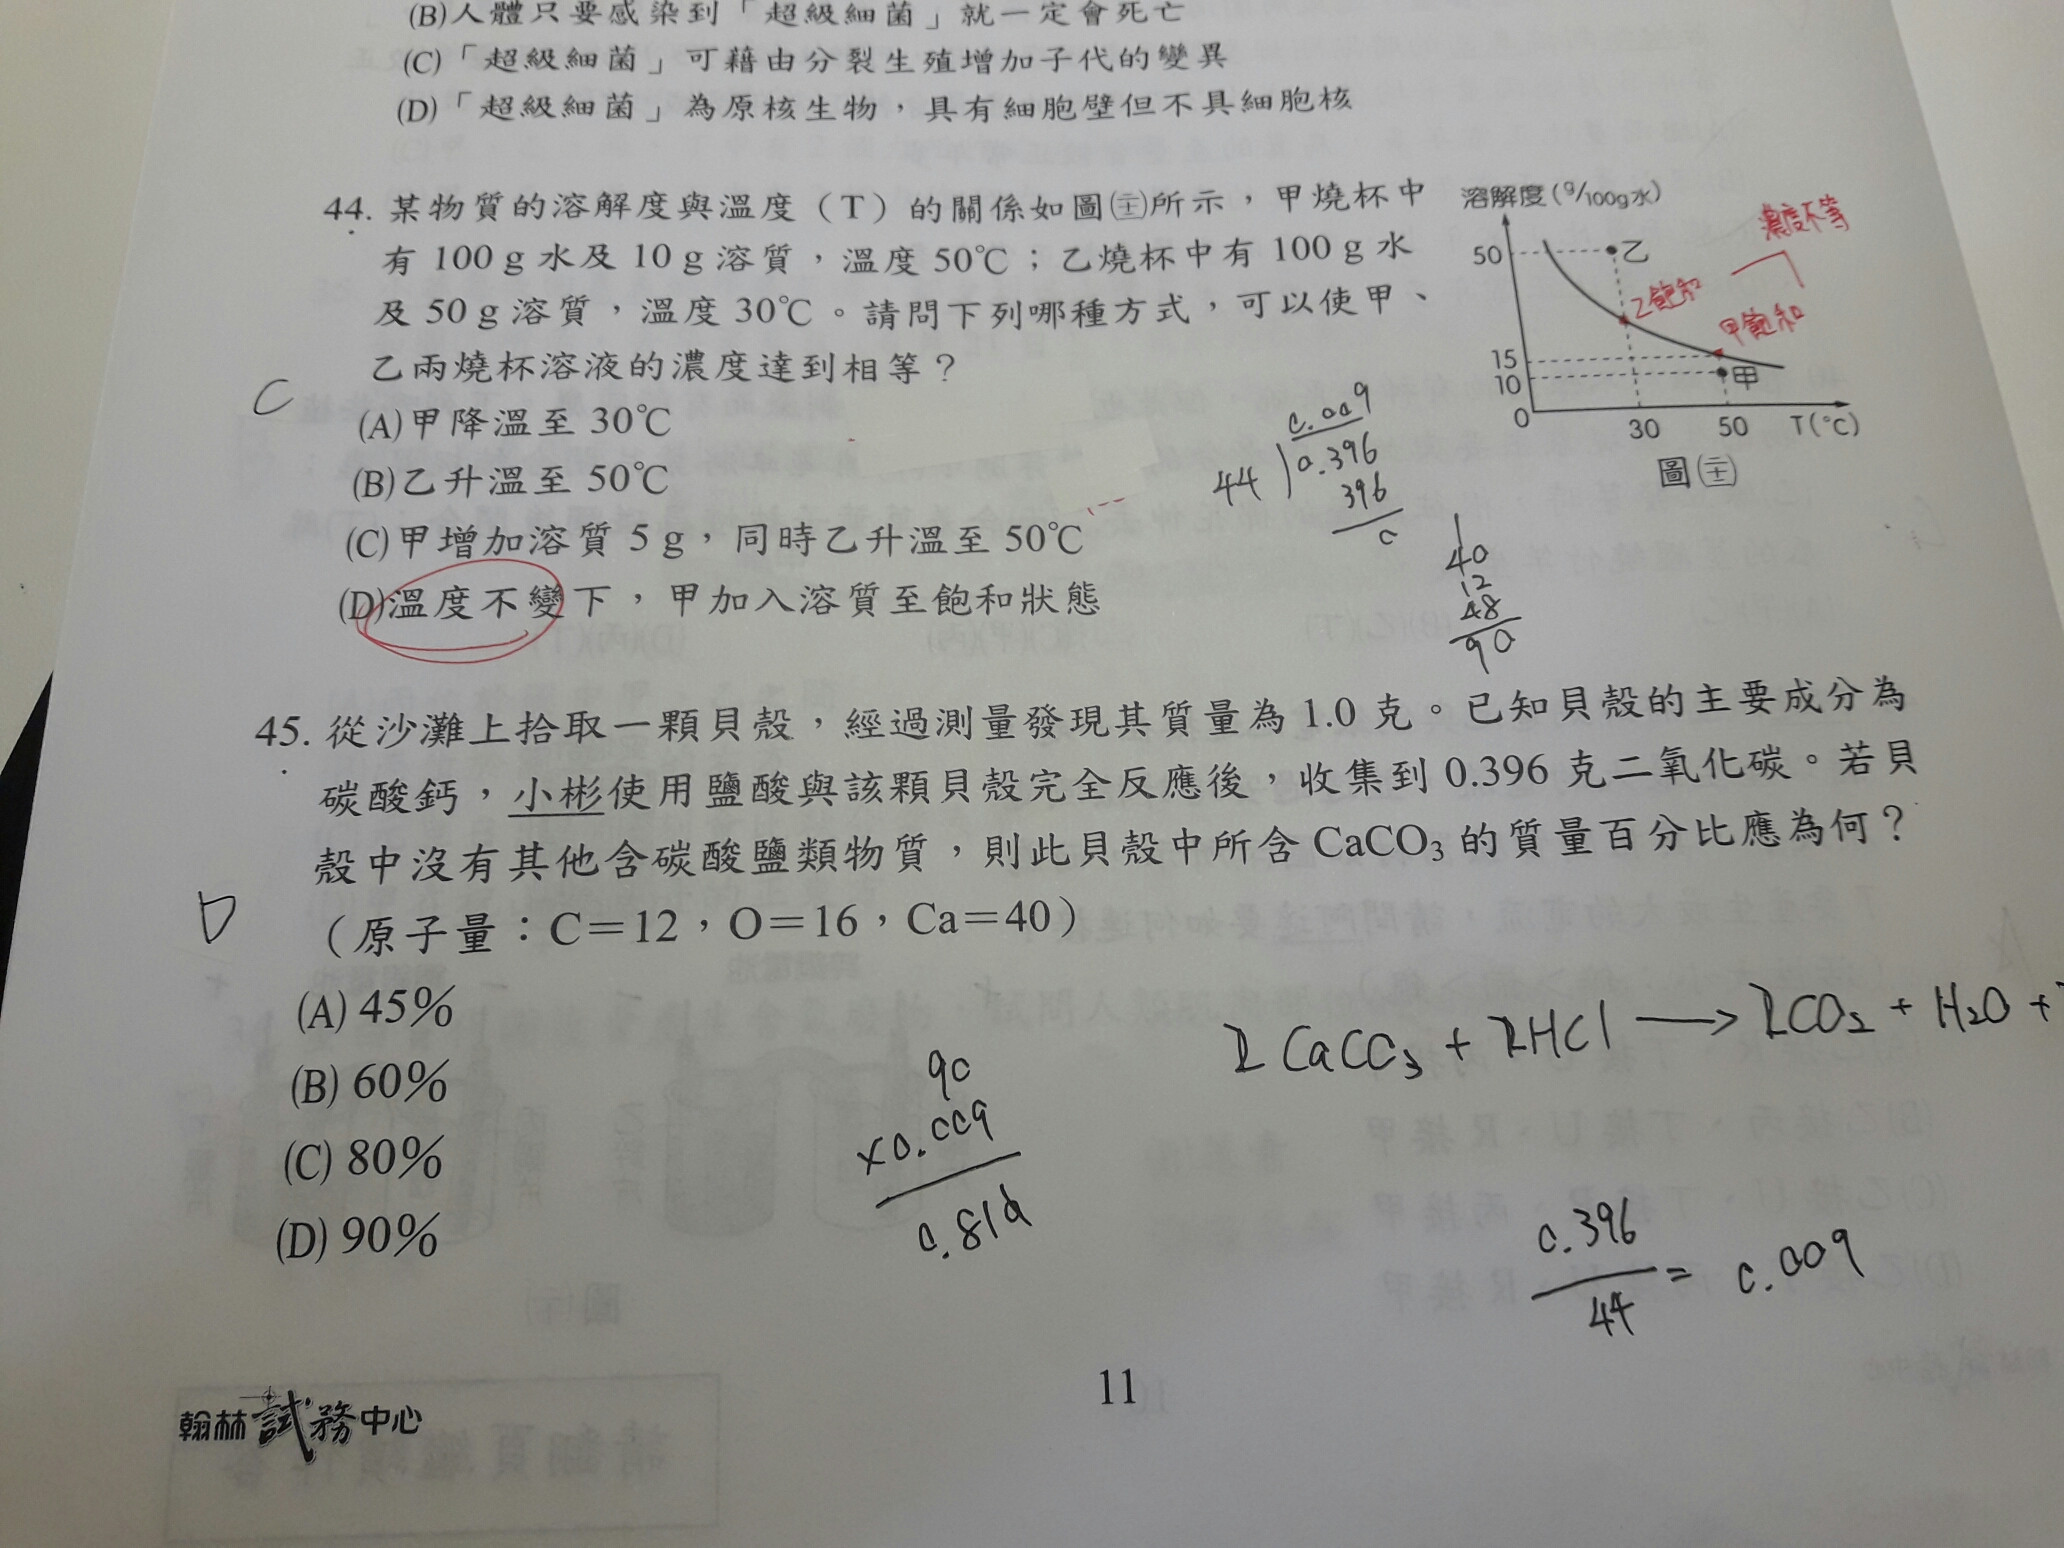 (B)人體只要感染到「超級細菌」就一定會死亡
(C)「超級細菌」可藉由分裂生殖增加子代的變異
(D)「超級細菌」為原核生物，具有細胞壁但不具細胞核
44. 某物質的溶解度與溫度（T）的關係如圖(三十)所示，甲燒杯中
有 100 g 水及 10 g 溶質，溫度 50℃；乙燒杯中有 100 g 水
及 50 g 溶質，溫度 30℃。請問下列哪種方式，可以使甲、
乙兩燒杯溶液的濃度達到相等？
C
(A)甲降溫至 30℃
(B)乙升溫至 50℃
(C)甲增加溶質 5 g，同時乙升溫至 50℃
(D)溫度不變下，甲加入溶質至飽和狀態
溶解度(g/100g水)
濃度不等
50
乙
乙飽和
甲飽和
15
10
甲
0
30
50
T(℃)
0.009
44
0.396
396
0
40
12
48
90
45. 從沙灘上拾取一顆貝殼，經過測量發現其質量為 1.0 克。已知貝殼的主要成分為
碳酸鈣，小彬使用鹽酸與該顆貝殼完全反應後，收集到 0.396 克二氧化碳。若貝
殼中沒有其他含碳酸鹽類物質，則此貝殼中所含 CaCO₃ 的質量百分比應為何？
D
（原子量：C＝12，O＝16，Ca＝40）
(A) 45%
(B) 60%
(C) 80%
(D) 90%
2CaCO₃ + 2HCl ⟶ 2CO₂ + H₂O +
90
×0.009
0.810
0.396
44
= 0.009
11
翰林試務中心